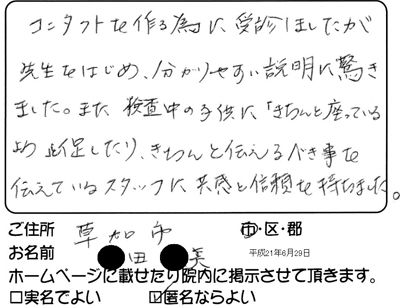 コンタクトを作る為に受診しましたが
先生をはじめ、分かりやすい説明に驚き
ました。また検査中の子供に「きちんと座っている
足したり、きちんと伝えるべき事を
伝えているスタッフに共感と信頼を持ちました。
ご住所 草加市 市・区・郡
お名前 田 美 平成21年6月29日
ホームページに載せたり院内に掲示させて頂きます。
□実名でよい ☑匿名ならよい